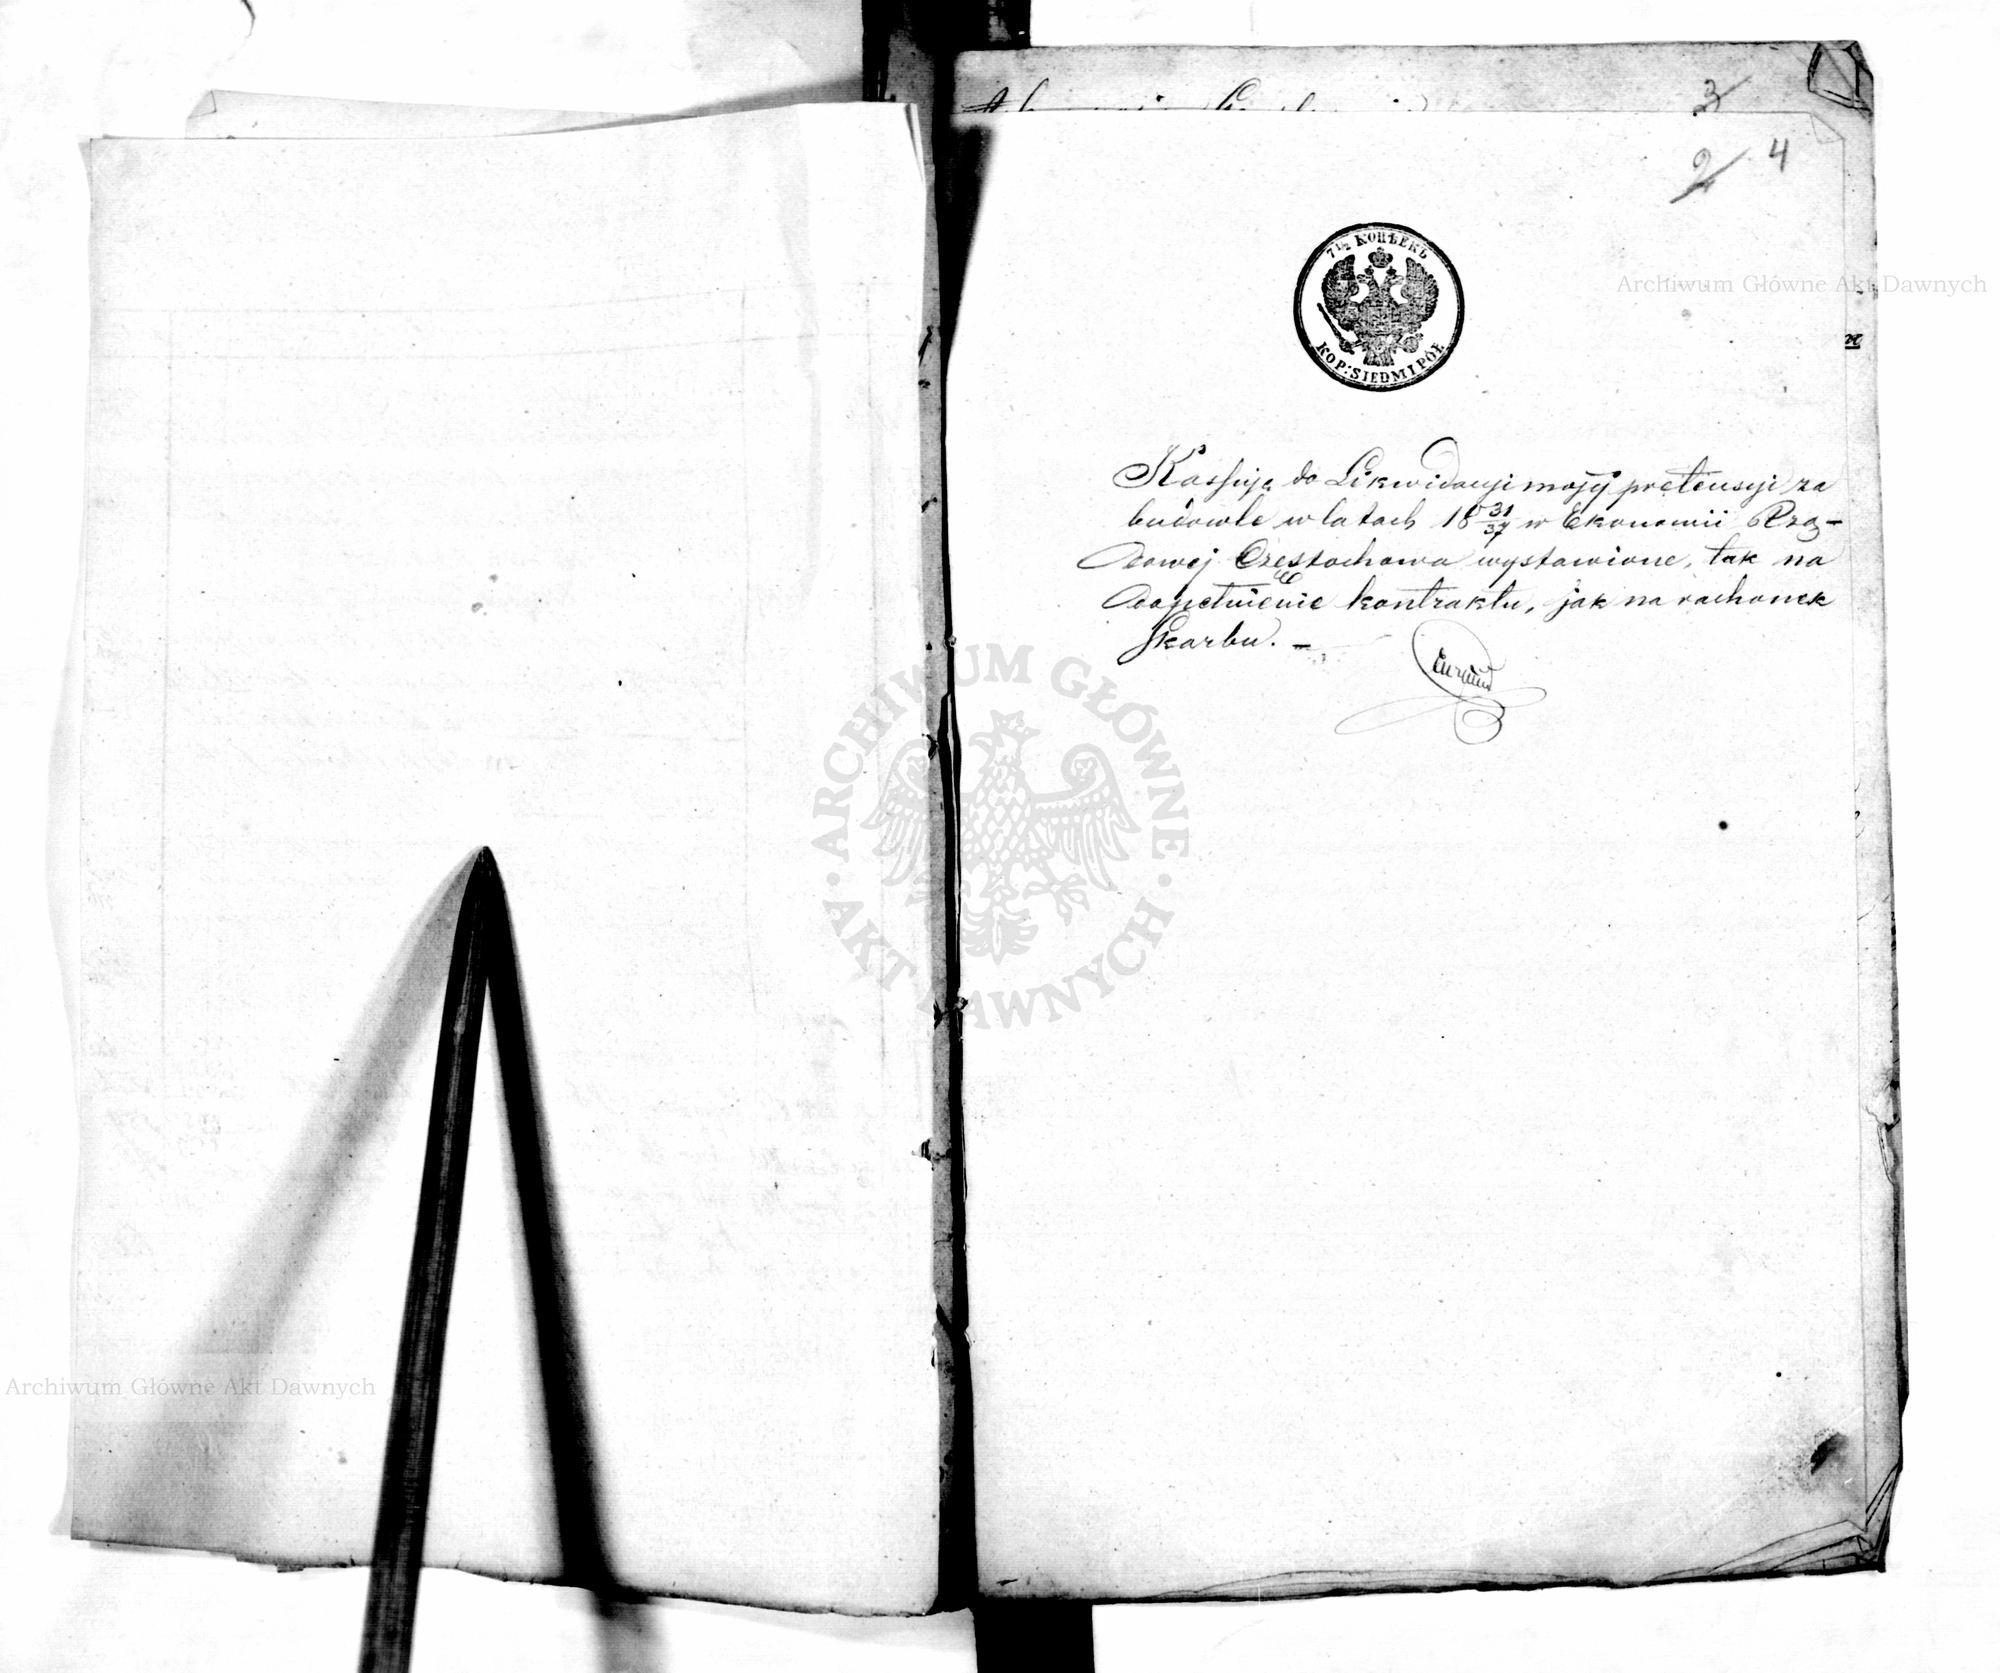 3
2 4
7 1/2 КОПѢЕКЪ
KOP: SIEDM I PÓŁ
Kassuję do Likwidacyi mojéj pretensyi za
budowle w latach 18 31/37 w Ekonomii Rzą-
dowej Częstochowa wystawione, tak na
dopełnienie kontraktu, jak na rachunek
skarbu. —
Archiwum Główne Akt Dawnych
ARCHIWUM GŁÓWNE
AKT DAWNYCH
Archiwum Główne Akt Dawnych